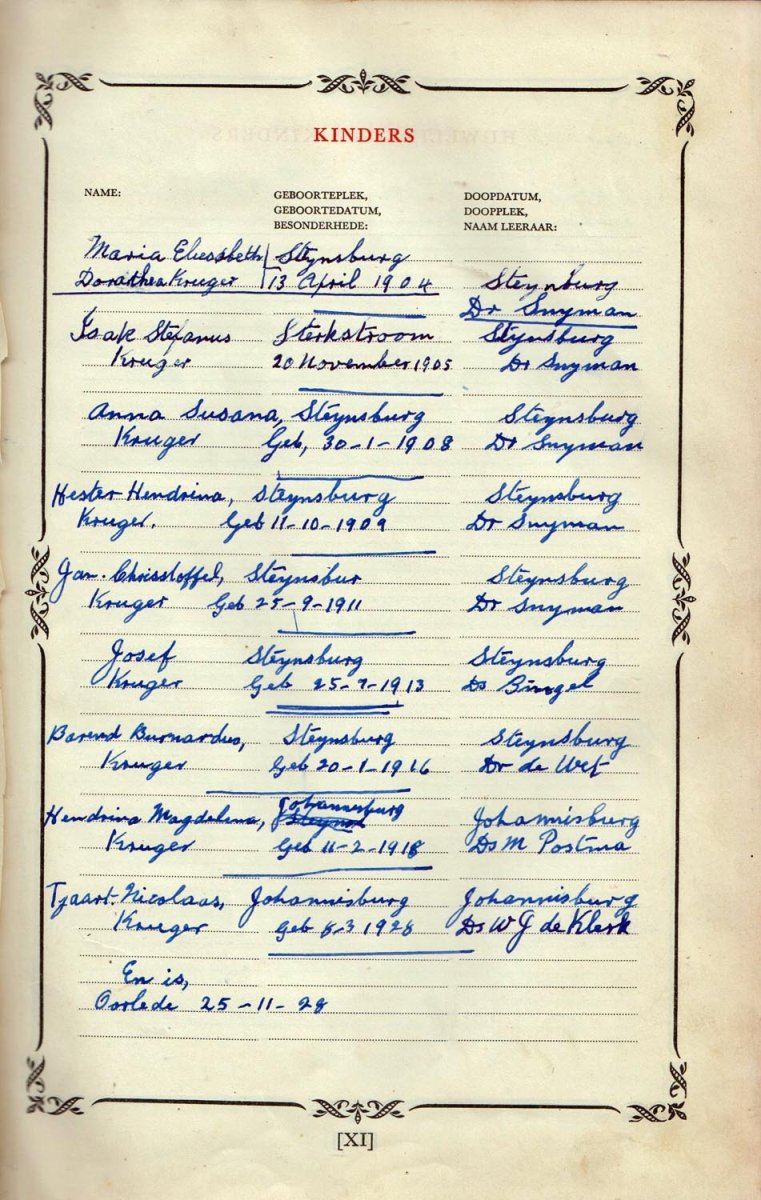 KINDERS
NAME: GEBOORTEPLEK, DOOPDATUM,
GEBOORTEDATUM, DOOPPLEK,
BESONDERHEDE: NAAM LEERAAR:
Maria Eliessbeth Steynsburg
Dorathea Kruger 13 April 1904 Steynburg
Dr Snyman
Isak Stefanus Sterkstroom Stynsburg
Kruger 20 November 1905 Dr Snyman
Anna Susana, Steynsburg Steynsburg
Kruger Geb, 30-1-1908 Dr Snyman
Hester Hendrina, Steynsburg Steynsburg
Kruger. Geb 11-10-1909 Dr Snyman
Jan. Chrisstoffel, Steynsbur Steynsburg
Kruger Geb 25-9-1911 Dr Snyman
Josef Steynsburg Steynsburg
Kruger Geb 25-9-1913 Ds
Barend Burnardus, Steynsburg Steynsburg
Kruger Geb 20-1-1916 Dr de Wet
Hendrina Magdelena, Johannisburg Johannisburg
Kruger Geb 11-2-1918 Ds M Postma
Tjaart. Nicolaas, Johannisburg Johannisburg
Kruger Geb 8-3 1928 Ds W J de Klerk
En is,
Oorlede 25-11-28
[XI]